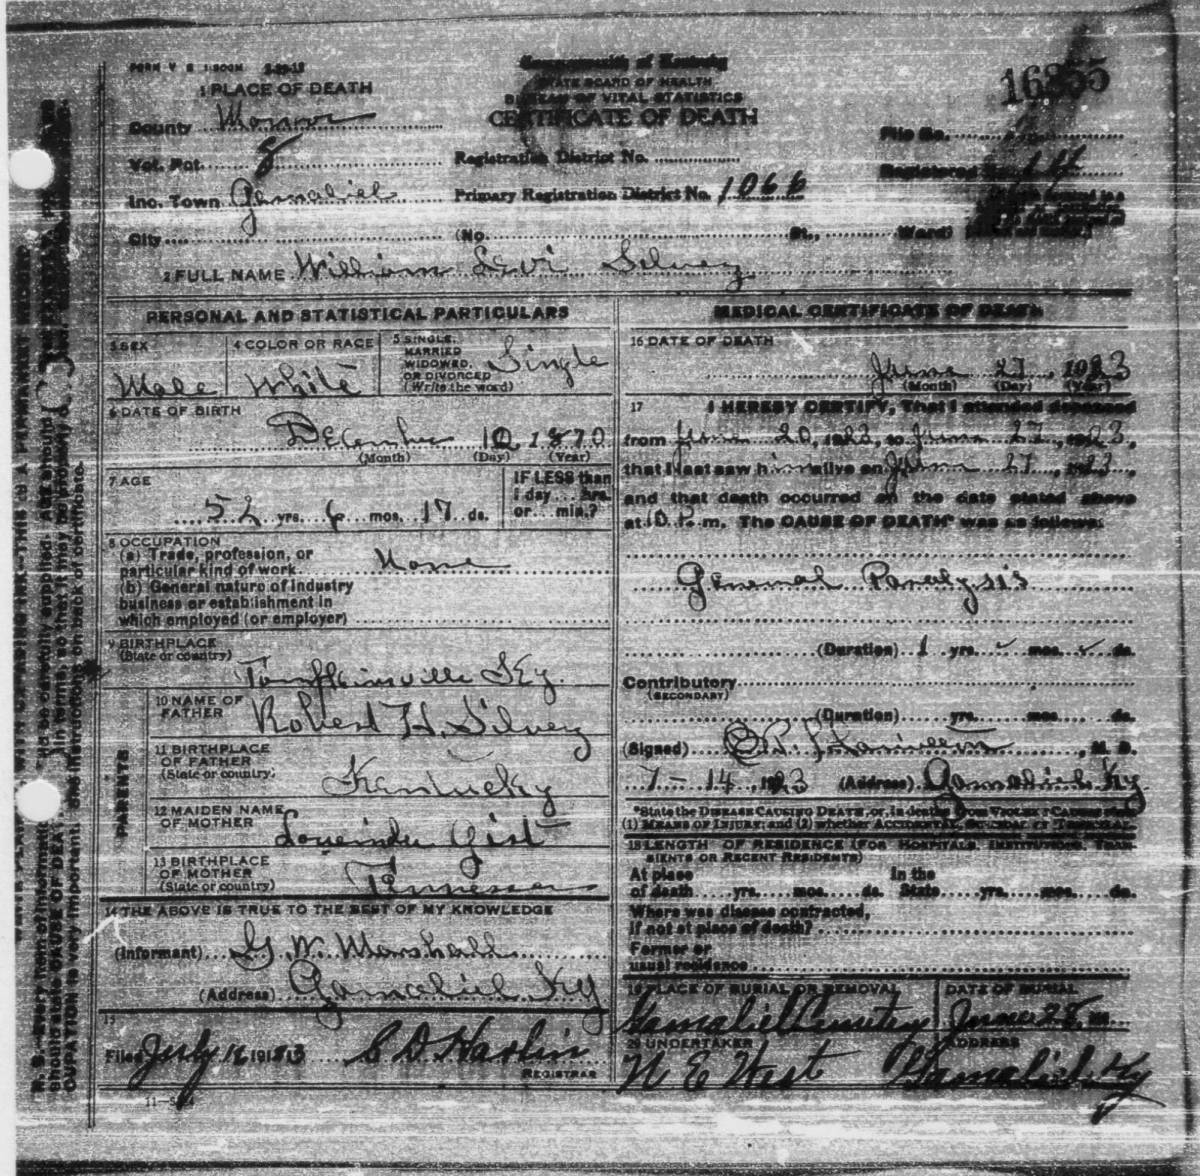 FORM V S 1-500M 3-29-19
Commonwealth of Kentucky
STATE BOARD OF HEALTH
BUREAU OF VITAL STATISTICS
CERTIFICATE OF DEATH
16855
1 PLACE OF DEATH
County Monroe
File No.
Vot. Pct. 8
Registration District No.
Registered No. 14
Inc. Town Gamaliel
Primary Registration District No. 1066
City (No. St., Ward)
2 FULL NAME William Levi Silvey
PERSONAL AND STATISTICAL PARTICULARS
3 SEX
Male
4 COLOR OR RACE
White
5 SINGLE,
MARRIED
WIDOWED,
OR DIVORCED
(Write the word)
Single
6 DATE OF BIRTH
December 10, 1870
(Month) (Day) (Year)
7 AGE
52 yrs. 6 mos. 17 ds.
IF LESS than
1 day... hrs.
or... min.?
8 OCCUPATION
(a) Trade, profession, or
particular kind of work None
(b) General nature of industry
business or establishment in
which employed (or employer)
9 BIRTHPLACE
(State or country)
Tompkinsville Ky.
PARENTS
10 NAME OF
FATHER
Robert H. Silvey
11 BIRTHPLACE
OF FATHER
(State or country)
Kentucky
12 MAIDEN NAME
OF MOTHER
Lourinda Gist
13 BIRTHPLACE
OF MOTHER
(State or country)
Tennessee
14 THE ABOVE IS TRUE TO THE BEST OF MY KNOWLEDGE
(Informant) G. W. Marshall
(Address) Gamaliel Ky
15
Filed July 16 1913 C D Harlin
REGISTRAR
11-5
MEDICAL CERTIFICATE OF DEATH
16 DATE OF DEATH
June 27, 1923
(Month) (Day) (Year)
17 I HEREBY CERTIFY, That I attended deceased
from June 20, 1923, to June 27, 1923,
that I last saw him alive on June 27, 1923,
and that death occurred on the date stated above
at 10 P. m. The CAUSE OF DEATH* was as follows:
General Paralysis
(Duration) 1 yrs. mos. ds.
Contributory
(SECONDARY)
(Duration) yrs. mos. ds.
(Signed) , M. D.
7-14, 1923 (Address) Gamaliel Ky
*State the DISEASE CAUSING DEATH, or, in deaths from VIOLENT CAUSES state
(1) MEANS OF INJURY; and (2) whether ACCIDENTAL, SUICIDAL or
18 LENGTH OF RESIDENCE (FOR HOSPITALS, INSTITUTIONS, TRAN-
SIENTS OR RECENT RESIDENTS)
At place
of death yrs. mos. ds.
In the
State yrs. mos. ds.
Where was disease contracted,
if not at place of death?
Former or
usual residence
19 PLACE OF BURIAL OR REMOVAL
Gamaliel Cemetry
DATE OF BURIAL
June 28
20 UNDERTAKER
N E West
ADDRESS
Gamaliel, Ky
should state CAUSE OF DEATH in terms, so that it may be properly
OCCUPATION is very important. See instructions on back of certificate.